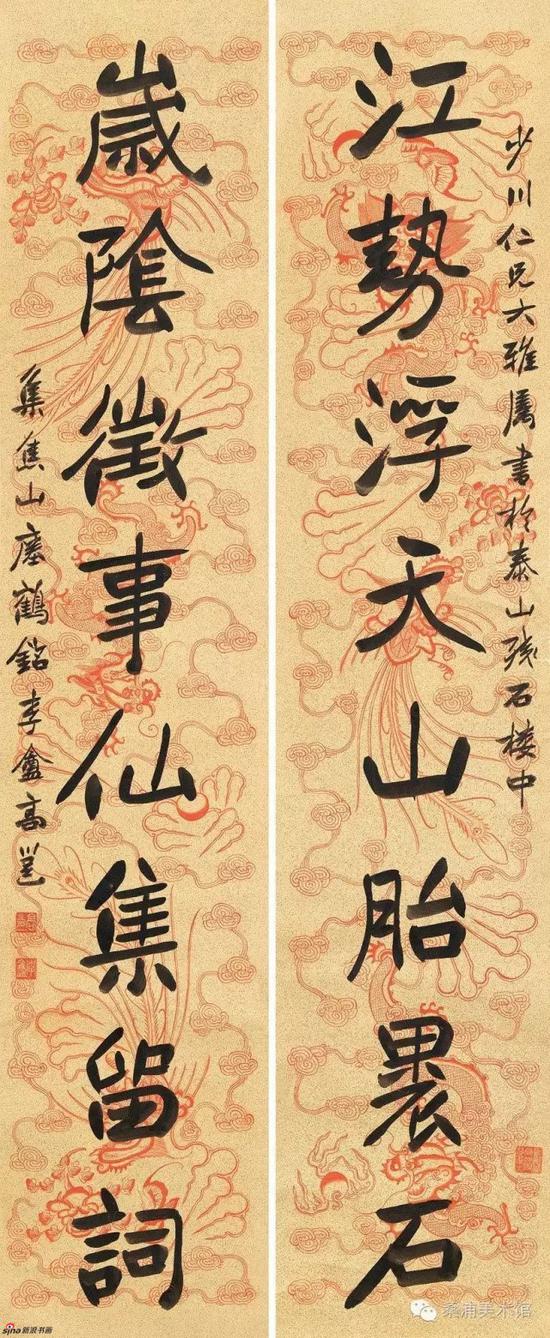 少川仁兄大雅属書於泰山殘石楼中
江勢浮天山胎裹石
歲陰徵事仙集留詞
集焦山瘞鶴銘李盦高邕
sina新浪书画
桑浦美术馆